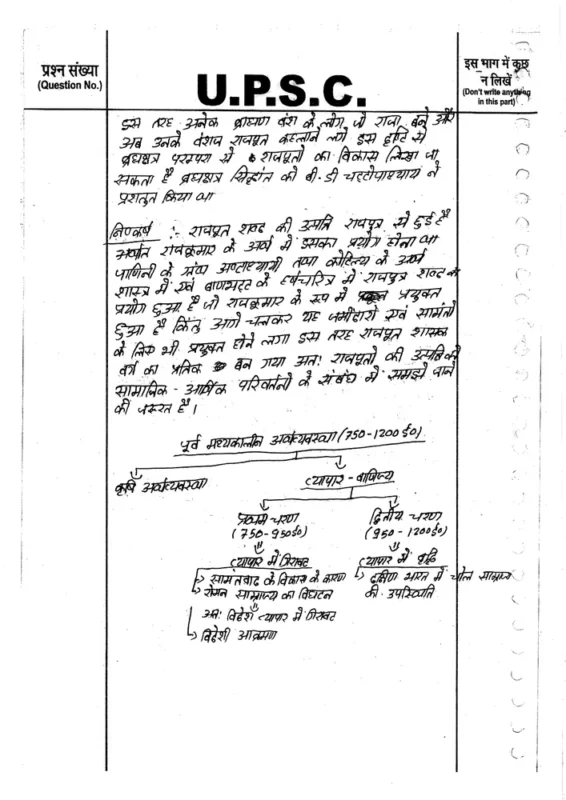 प्रश्न संख्या
(Question No.)
U.P.S.C.
इस भाग में कुछ
न लिखें
(Don't write anything
in this part)
इस तरह अनेक ब्राह्मण वंश के लोग जो राजा बने और
अब उनके वंशज राजपूत कहलाने लगे इस दृष्टि से
ब्रह्मक्षत्र परम्परा से राजपूतों का विकास लिखा जा
सकता है ब्रह्मक्षत्र सिद्धांत को बी.डी चट्टोपाध्याय ने
प्रस्तुत किया था
निष्कर्ष :- राजपूत शब्द की उत्पत्ति राजपुत्र से हुई है
अर्थात राजकुमार के अर्थ में इसका प्रयोग होता था
पाणिनी के ग्रंथ अष्टाध्यायी तथा कौटिल्य के अर्थ
शास्त्र में एवं बाणभट्ट के हर्षचरित्र में राजपुत्र शब्द का
प्रयोग हुआ है जो राजकुमार के रूप में प्रयुक्त
हुआ है किंतु आगे चलकर यह जमींदारों एवं सामंतों
के लिए भी प्रयुक्त होने लगा इस तरह राजपूत शासक
वर्ग का प्रतिक बन गया अतः राजपूतों की उत्पत्ति को
सामाजिक - आर्थिक परिवर्तनों के संबंध में समझे जाने
की जरूरत है।
पूर्व मध्यकालीन अर्थव्यवस्था (750-1200ई०)
कृषि अर्थव्यवस्था व्यापार-वाणिज्य
प्रथम चरण द्वितीय चरण
(750-950ई०) (950-1200ई०)
व्यापार में गिरावट व्यापार में वृद्धि
सामंतवाद के विकास के कारण दक्षिण भारत में चोल साम्राज्य
रोमन साम्राज्य का विघटन की उपस्थिति
अतः विदेशी व्यापार में गिरावट
विदेशी आक्रमण